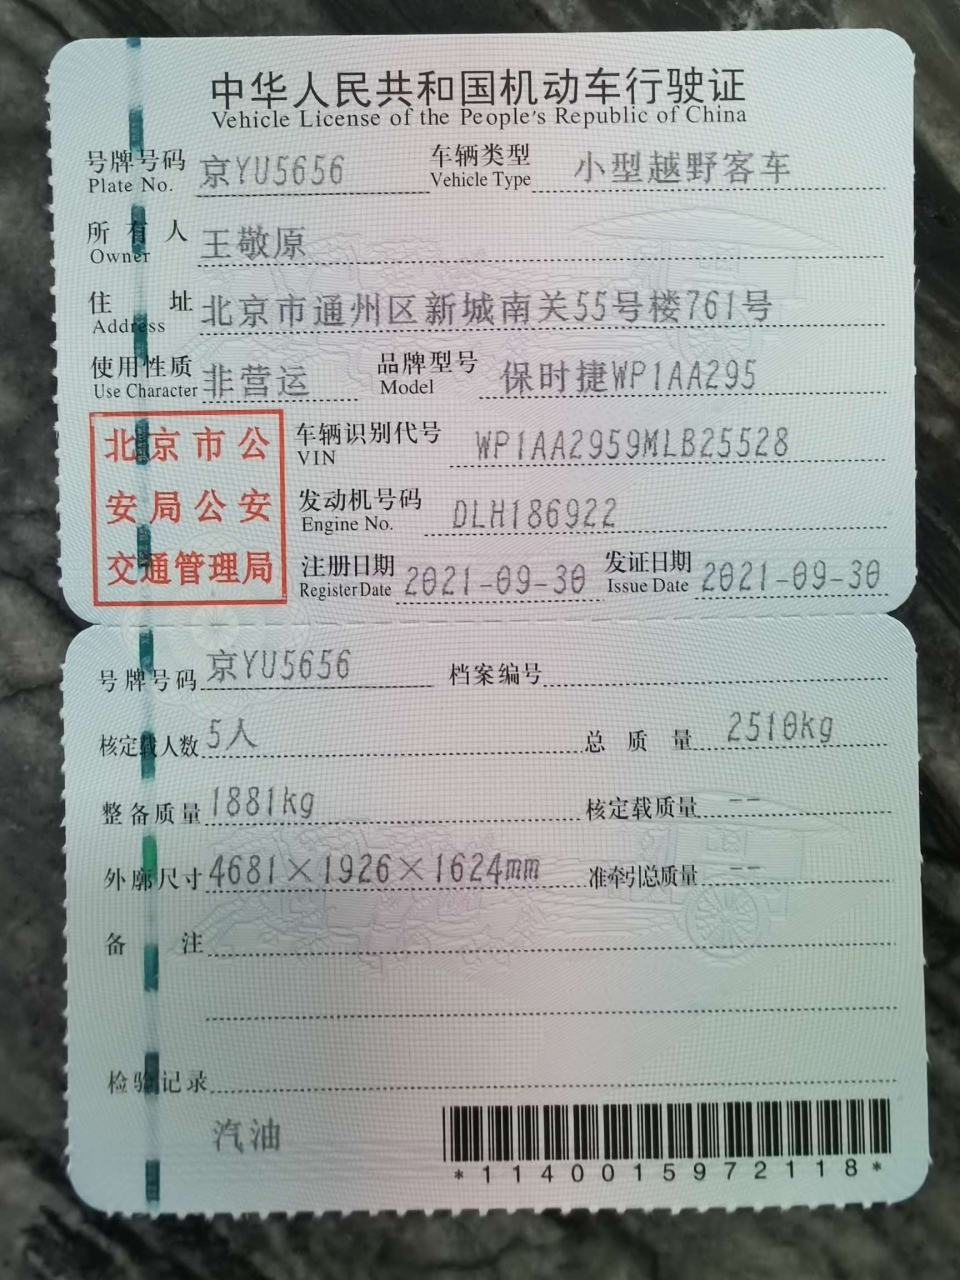 中华人民共和国机动车行驶证
Vehicle License of the People's Republic of China
号牌号码 京YU5656 车辆类型 小型越野客车
Plate No. Vehicle Type
所有人 王敬原
Owner
住址 北京市通州区新城南关55号楼761号
Address
使用性质 非营运 品牌型号 保时捷WP1AA295
Use Character Model
北京市公
安局公安
交通管理局
车辆识别代号 WP1AA2959MLB25528
VIN
发动机号码 DLH186922
Engine No.
注册日期 2021-09-30 发证日期 2021-09-30
Register Date Issue Date
号牌号码 京YU5656 档案编号
核定载人数 5人 总质量 2510kg
整备质量 1881kg 核定载质量 --
外廓尺寸 4681×1926×1624mm 准牵引总质量 --
备注
检验记录
汽油
*1140015972118*